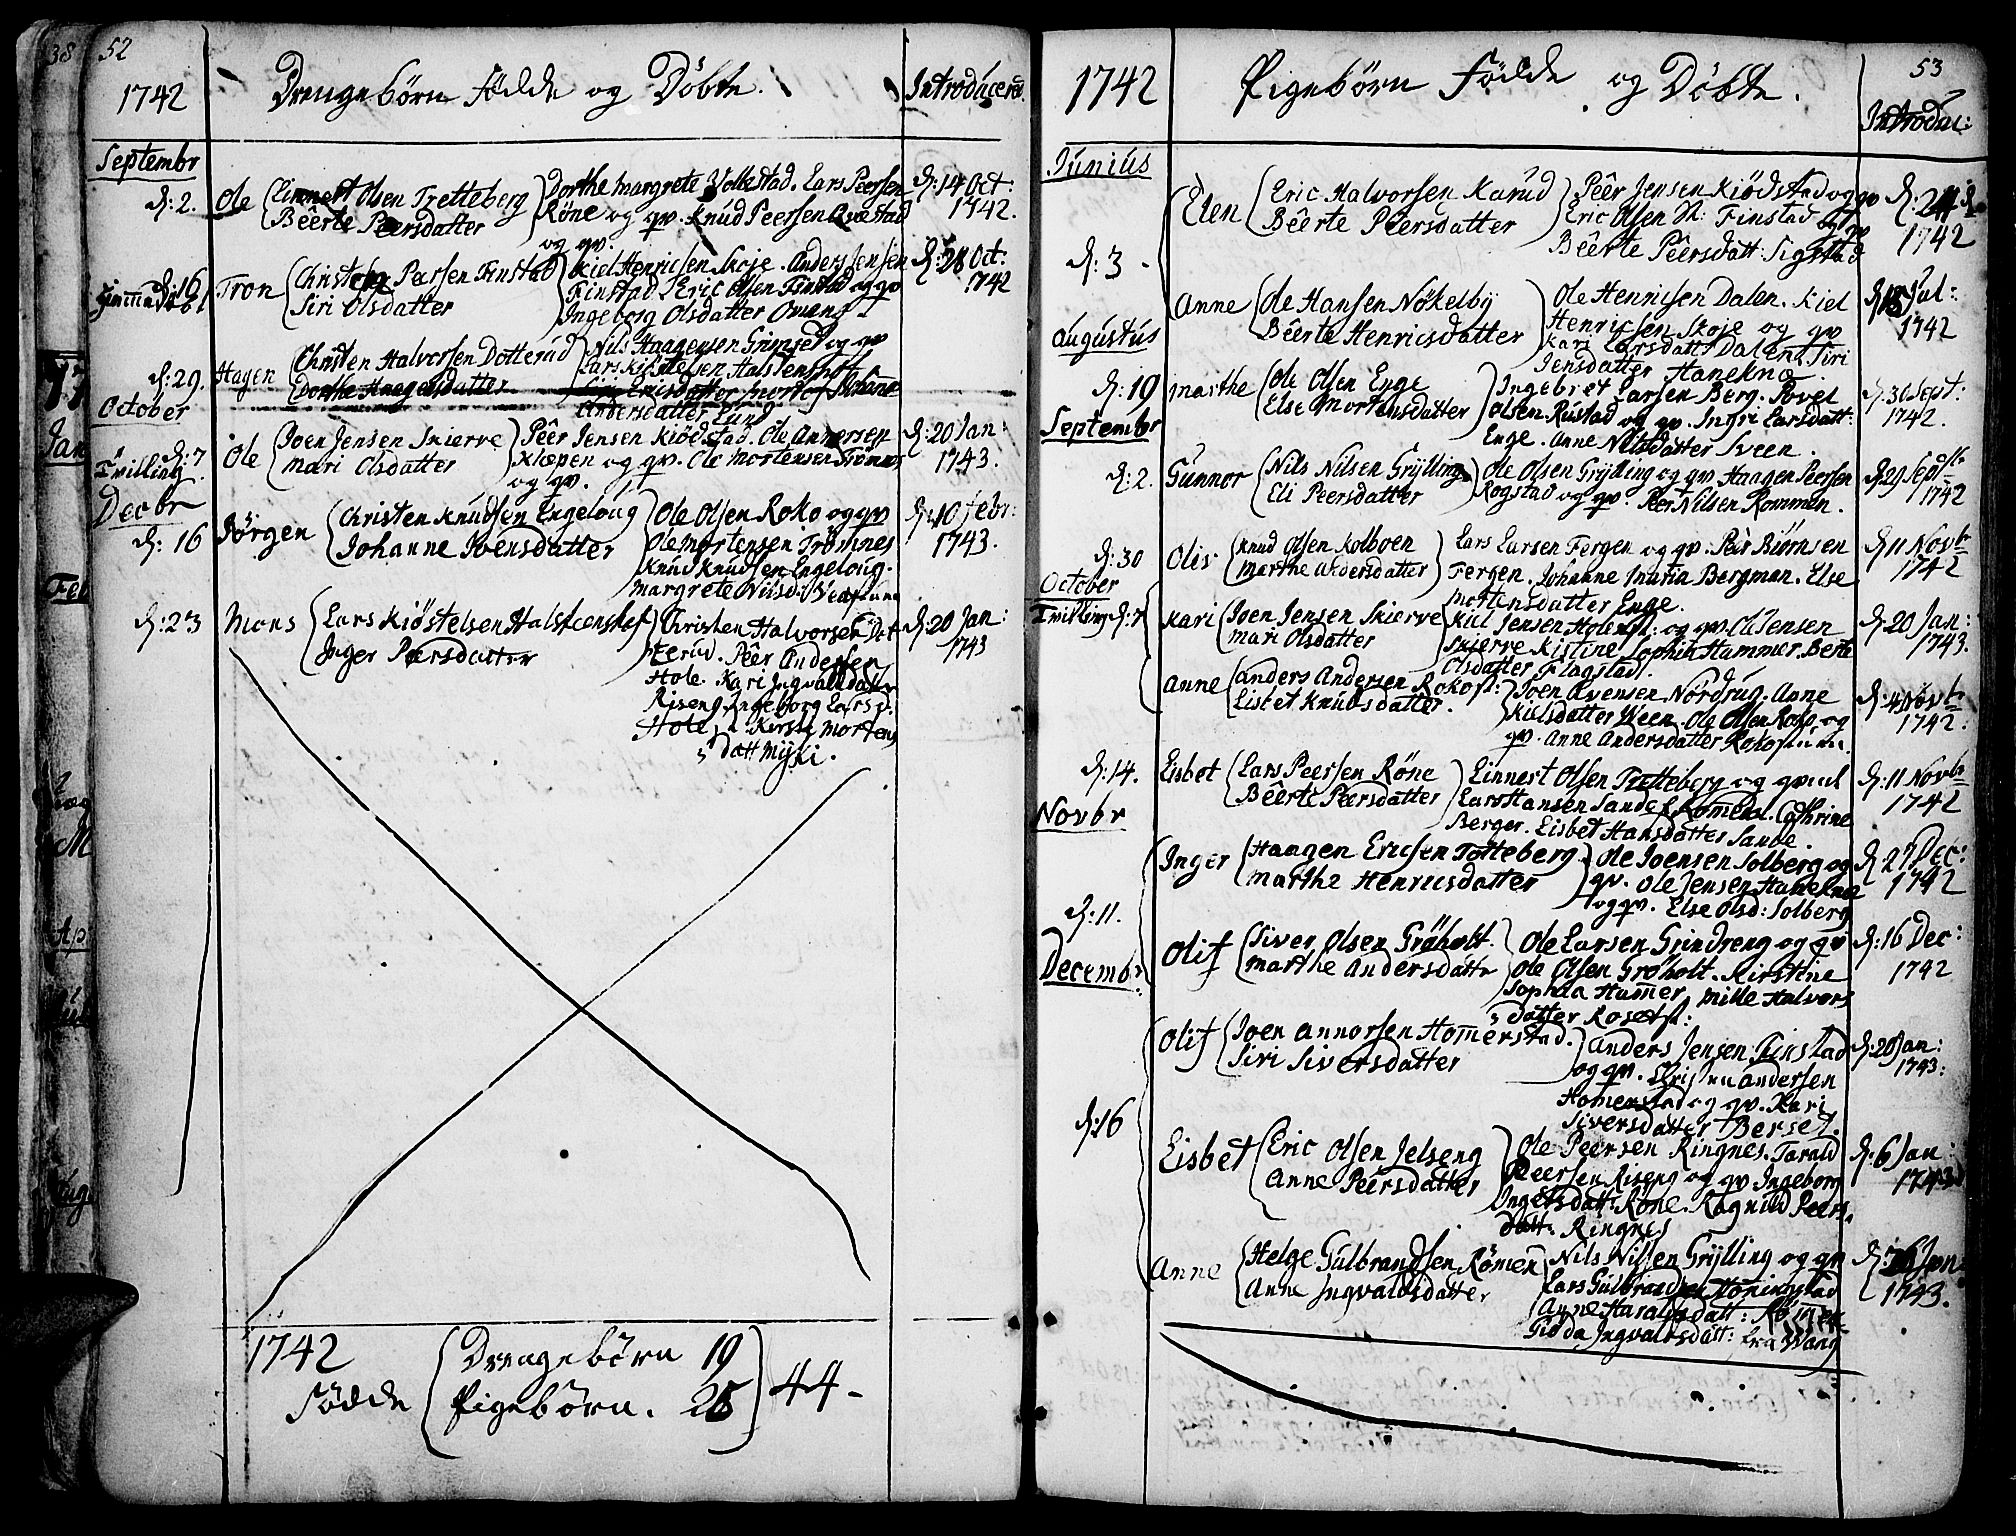 52
1742
Drengebørn Födde og Döbte.
Introducered.
Septembr
d: 2.
Ole
Linnert Olsen Tretteberg
Bëerte Peersdatter
Dorthe Margrete Volkestad. Lars Peersen
Röne og qv. Knud Peersen
og qv.
d: 14 Oct:
1742.
d: 16
Tron
Peersen Finstad
Siri Olsdatter
Kiel Henricsen Skoje. Anders Jensen
Finstad. Eric Olsen Finstad og qv
Ingeborg Olsdatter
d: 28 Oct:
1742
d: 29.
Hagen
Christen Halvorsen Dotterud
Dorthe Haagensdatter
Nils Haagensen Grimset og qv
Lars Kiøstelsen Halstenshof
Ericsdatter
Andersdatter Lund
October
d: 7
Tvilling
Ole
Joen Jensen Skierve
Mari Olsdatter
Peêr Jensen Kiödstad. Ole Annersen
Klæpen og qv. Ole Mortensen Trömnes
og qv.
d: 20 Jan:
1743.
Decbr
d: 16
Jörgen
Christen Knudsen Engeloug
Johanne Ivensdatter
Ole Olsen Roko og qv
Ole Mortensen Trömnes
Knud Knudsen Engeloug.
Margrete
d: 10 febr:
1743.
d: 23
Mons
Lars Kiöstelsen Halsteenshof
Inger Peersdatter
Christen Halvorsen Dot
terud. Peêr Andersen
Hole. Kari Ingvaldsdatter
Riseng. Ingeborg Larsd:
Hole. Kirsti Mortens
datt Myki.
d: 20 Jan:
1743
1742
Födde
Drengebørn 19
Pigebørn. 25
44-
53
1742
Pigebörn Födde og Döbte.
Introduc:
Junius
d: 3
Elen
Eric Halvorsen Karud
Bêerte Peersdatter
Peêr Jensen Kiödstad og qv
Eric Olsen St: Finstad og qv
Bêerte Peersdatt: Sigstad
d: 24
1742
Augustus
Anne
Ole Hansen Nökelby
Bêerte Henricsdatter
Ole Henricsen Dalen. Kiel
Henricsen Skoje og qv
Kari Larsdatt: Dalen. Siri
Jensdatter Hanekne.
d: 18 Jul:
1742
d: 19
Marthe
Ole Olsen Enge
Else Mortensdatter
Ingebret Larsen Berg. Povel
Olsen Rustad og qv. Ingri Larsdatt:
Enge. Anne Nilsdatter Sveen.
d: Sept:
1742.
Septembr
d: 2.
Gunnor
Nils Nilsen Grylling
Eli Peersdatter
Ole Olsen Grylling og qv. Haagen Peersen
Rogstad og qv. Peer Nilsen Rommen.
d: 29 Sept:
1742
d: 30
Olis
Knud Olsen Kolboen
Marthe
Lars Larsen Fergen og qv. Peêr Biörnsen
Fergen. Johanne Bergman. Else
Mortensdatter Enge.
d: 11 Novb
1742
October
Tvilling d: 7
Kari
Joen Jensen Skierve
Mari Olsdatter
Kiel Jensen og qv. Ole Jensen
Skierve. Kistine Sophia Hammer. Berte
Olsdatter Flagstad.
d: 20 Jan:
1743.
Anne
Anders Andersen Rokost:
Lisbet Knudsdatter.
Joen Nordrug. Anne
Kielsdatter Ween. Ole Olsen Roko og
qv. Anne Andersdatter
d: 4 Novb
1742.
d: 14.
Lisbet
Lars Peersen Röne
Bêerte Peersdatter
Linnert Olsen Tretteberg og qv
Lars Hansen Sande. Cathrine
Berger. Lisbet Hansdatter Sande.
d: 11 Novbr
1742
Novbr
d: 11.
Inger
Haagen Ericsen Totteberg
Marthe Henricsdatter
Ole Joensen Solberg og
qv. Ole Jensen Hanekne
og qv. Else Olsd: Solberg
d: 27 Dec:
1742
Decembr
Olif
Siver Olsen Gröholt.
Marthe Andersdatte
Ole Larsen Grindreng og qv
Ole Olsen Gröholt. Kirstine
Sophia Hammer. Mille Halvors
datter Rosetst:
d: 16 Dec:
1742
Olif
Joen Annorsen Homerstad.
Siri Siversdatter
Anders Jensen Finstad
og qv. Andersen
Homerstad og qv. Kari
Siversdatter Berset.
d: 20 Jan:
1743:
d: 16
Lisbet
Eric Olsen Jelseng
Anne Peersdatter
Ole Peersen Ringnes. Tarald
Peersen Riseng og qv Ingeborg
Röne. Ragnild Peers.
datt: Ringnes
d: 6 Jan:
1743
Anne
Helge Gulbrandsen Römen
Anne Ingvaldsdatter
Nils Nilsen Grylling og qv
Lars Gulbrandsen Horningstad
Anne Haraldsdatt:
Ingvaldsdatt:
Jan:
1743.